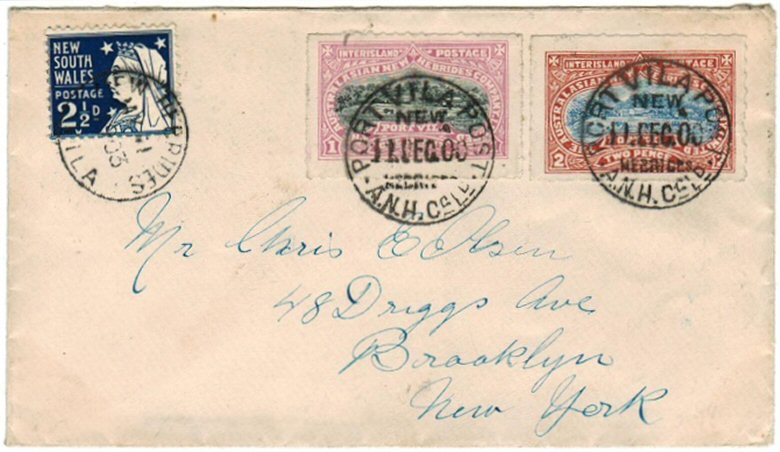 NEW
SOUTH
WALES
POSTAGE
2½D
NEW HEBRIDES
VILA
INTERISLAND POSTAGE
AUSTRALASIAN NEW HEBRIDES COMPANY
PORT VILA
1
PORT VILA POST
NEW
11 DEC. 03
HEBRIDES
A.N.H. Co Ld
INTERISLAND POSTAGE
AUSTRALASIAN
2
PORT VILA POST
NEW
11 DEC. 03
HEBRIDES
A.N.H. Co Ld
Mr Chris E Olsen
48 Driggs Ave
Brooklyn
New York